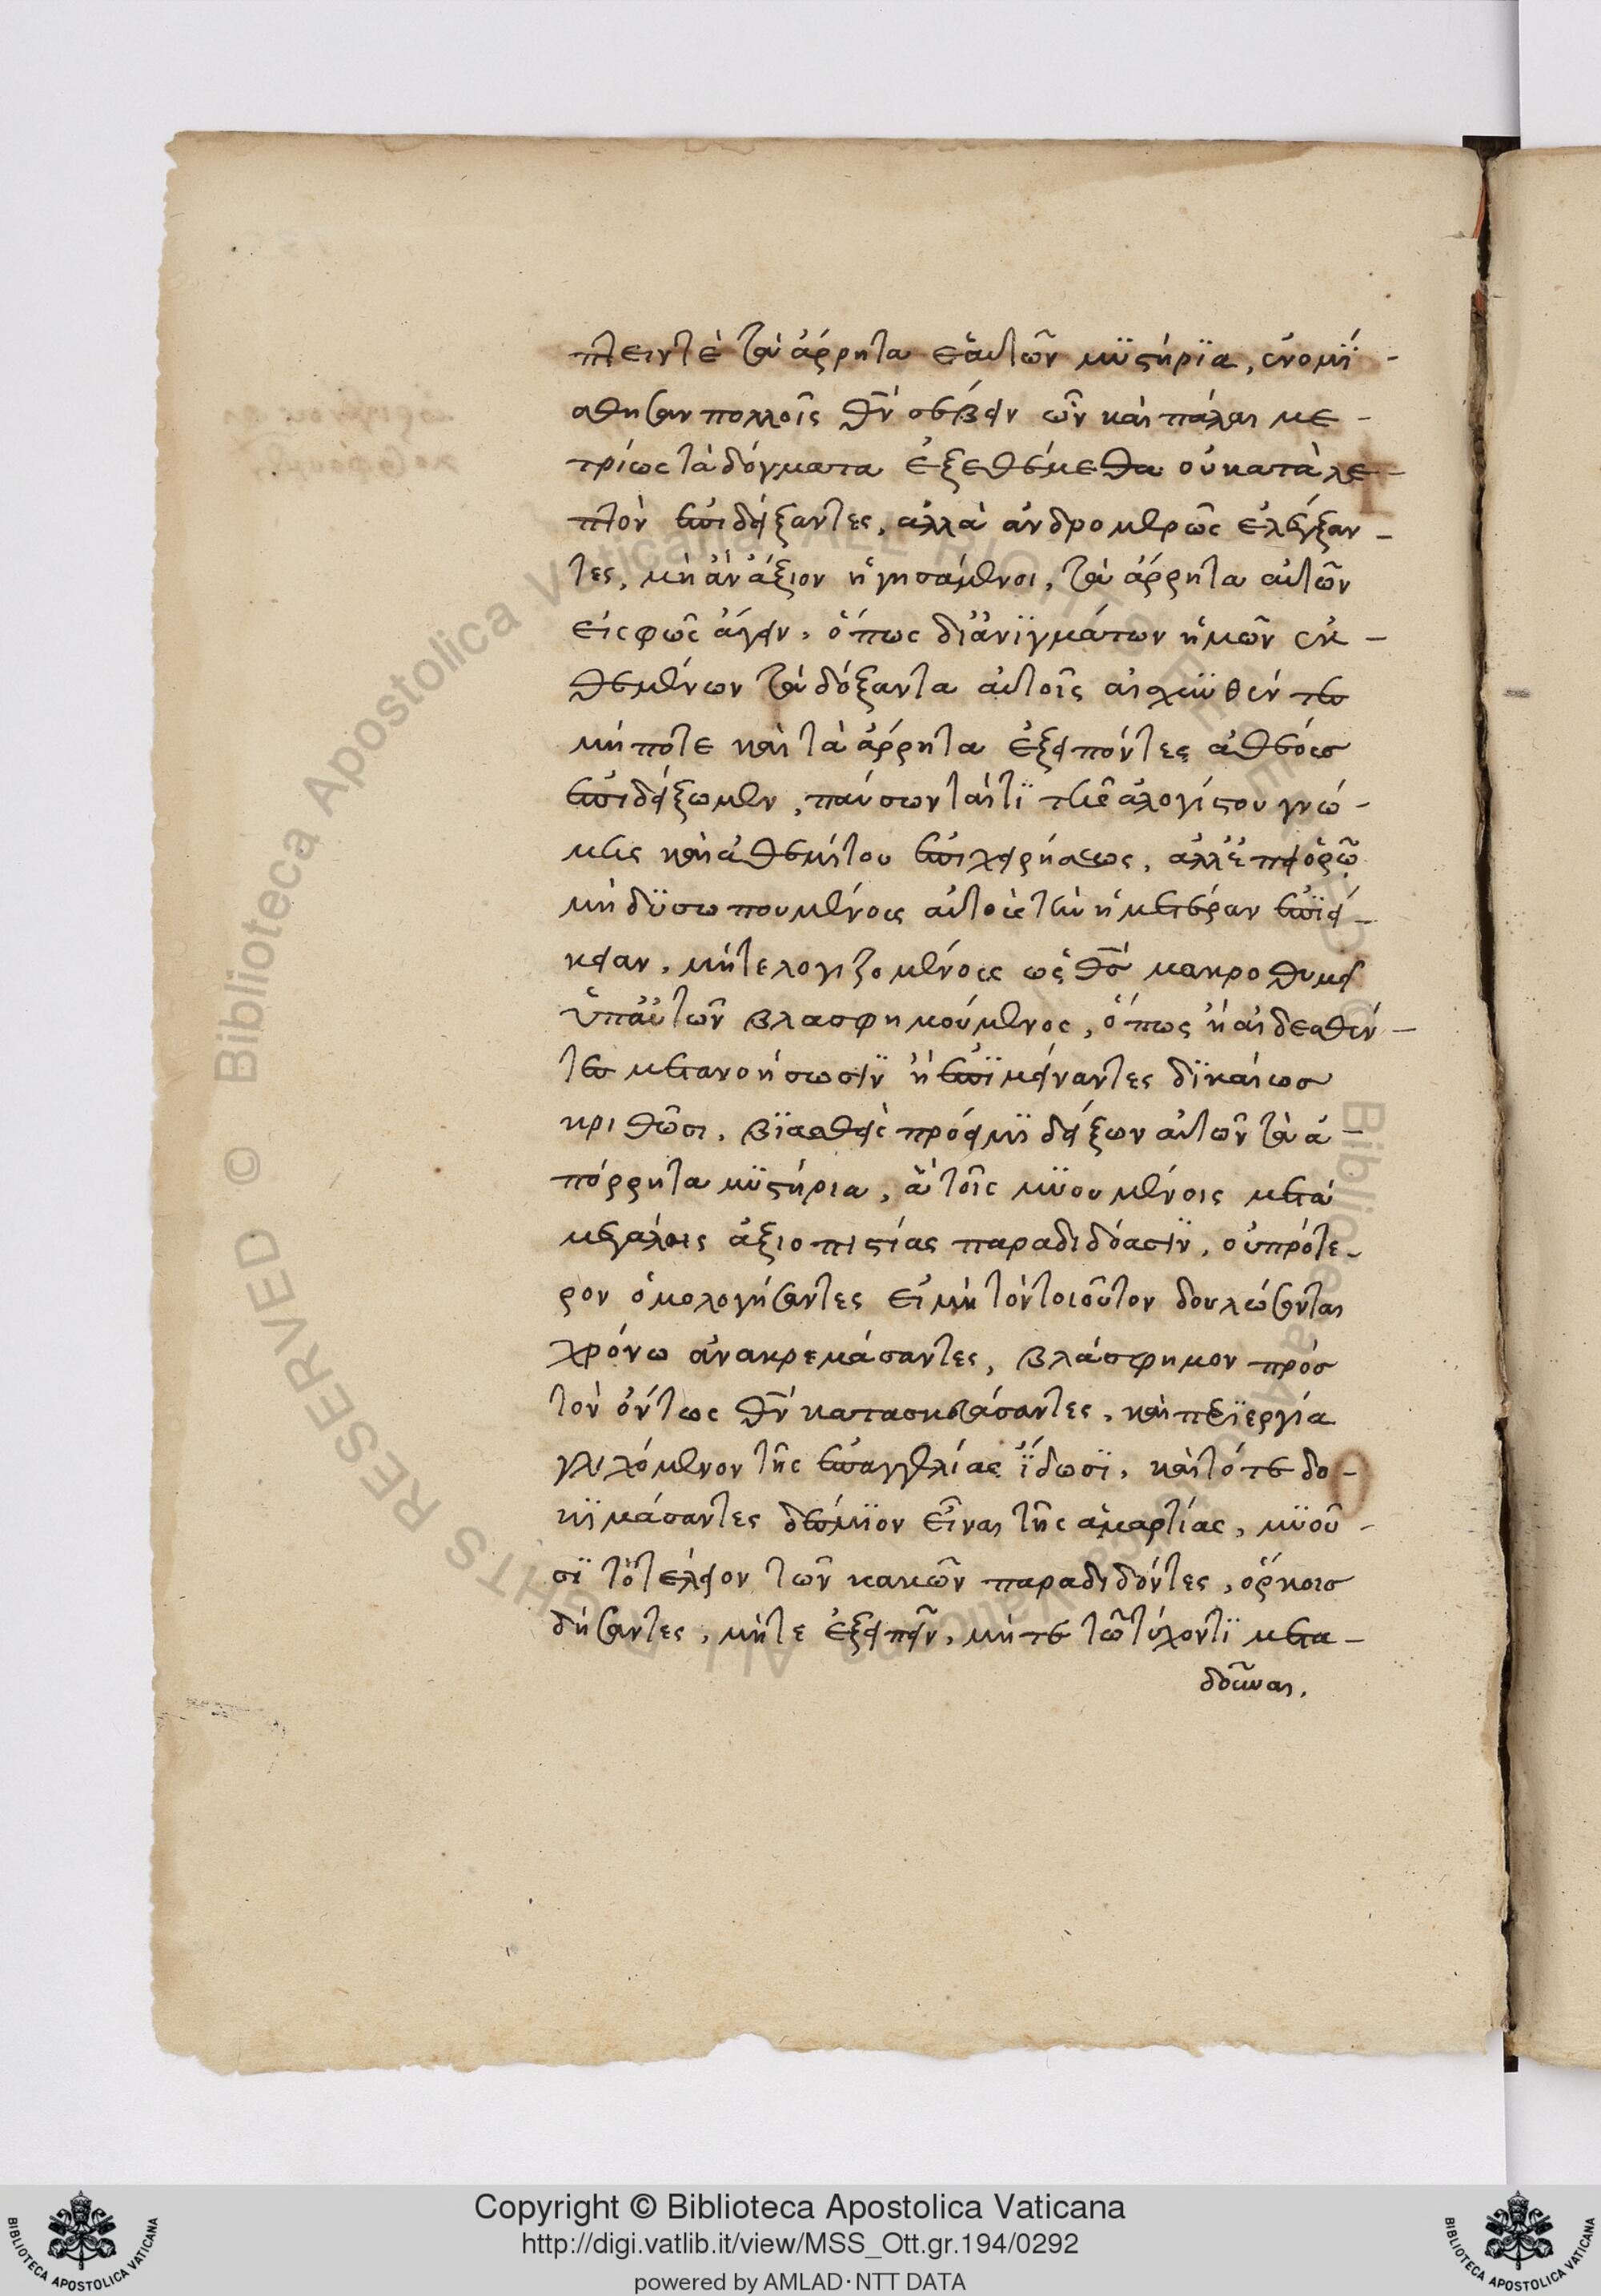 πτειντὲ τὰ ἀρρητα εἁυτῶν μϋστήρϊα, ἐνομϊ-
σθησαν πολλοῖς θν̄ σέβειν ὧν καὶ πάλαι με-
τρίως τὰ δόγματα ἐξεθέμεθα οὐ κατὰ λε-
πτὸν ἐπιδείξαντες, ἀλλὰ ἁνδρομερῶς ἐλέγξαν-
τες, μὴ ἀνάξιον ἡγησάμενοι, τὰ ἄρρητα αὐτῶν
εἰς φῶς ἄγειν, ὅπως δι᾽ ἀνϊγμάτων ἡμῶν ἐκ-
θεμένων τὰ δόξαντα αὐτοῖς αἰσχυνθέντες
μήποτε καὶ τὰ ἄρρητα ἐξειπόντες ἀθέους
ἐπιδείξωμεν, παύσωνταί τϊ τῆς ἀλογίστου γνώ-
μης καὶ ἀθεμίτου ἐπιχειρήσεως, ἀλλ᾽ ἐπεὶ ὁρῶ
μὴ δϋσωπουμένους αὐτοὺς τὴν ἡμετέραν ἐπϊεί-
κειαν, μήτε λογιζομένους ὡς θς̄ μακροθυμεῖ
ὑπ᾽ αὐτῶν βλασφημούμενος, ὅπως ἢ αἰδεσθέν-
τες μετανοήσωσϊν ἢ ἐπϊμείναντες δϊκαίως
κριθῶσι, βϊασθεὶς πρόειμϊ δείξων αὐτῶν τὰ ἀ-
πόρρητα μϋστήρια, ἃ τοῖς μϋουμένοις μετὰ
μεγάλης ἀξιοπιστίας παραδιδόασϊν, οὐ πρότε-
ρον ὁμολογήσαντες εἰ μὴ τὸν τοιοῦτον δουλώσωνται
χρόνω ἀνακρεμάσαντες, βλάσφημον πρὸς
τὸν ὄντως θν̄ κατασκευάσαντες, καὶ περϊεργία
γλιχόμενον τῆς ἐπαγγελίας ἴδωσϊ, καὶ τότε δο-
κϊμάσαντες δέσμϊον εἶναι τῆς ἁμαρτίας, μϋοῦ-
σϊ τὸ τέλειον τῶν κακῶν παραδιδόντες, ὅρκοις
δήσαντες, μήτε ἐξειπεῖν, μήτε τῶ τύχοντϊ μετα-
δοῦναι,
Copyright © Biblioteca Apostolica Vaticana
http://digi.vatlib.it/view/MSS_Ott.gr.194/0292
powered by AMLAD·NTT DATA
BIBLIOTECA APOSTOLICA VATICANA
BIBLIOTECA APOSTOLICA VATICANA